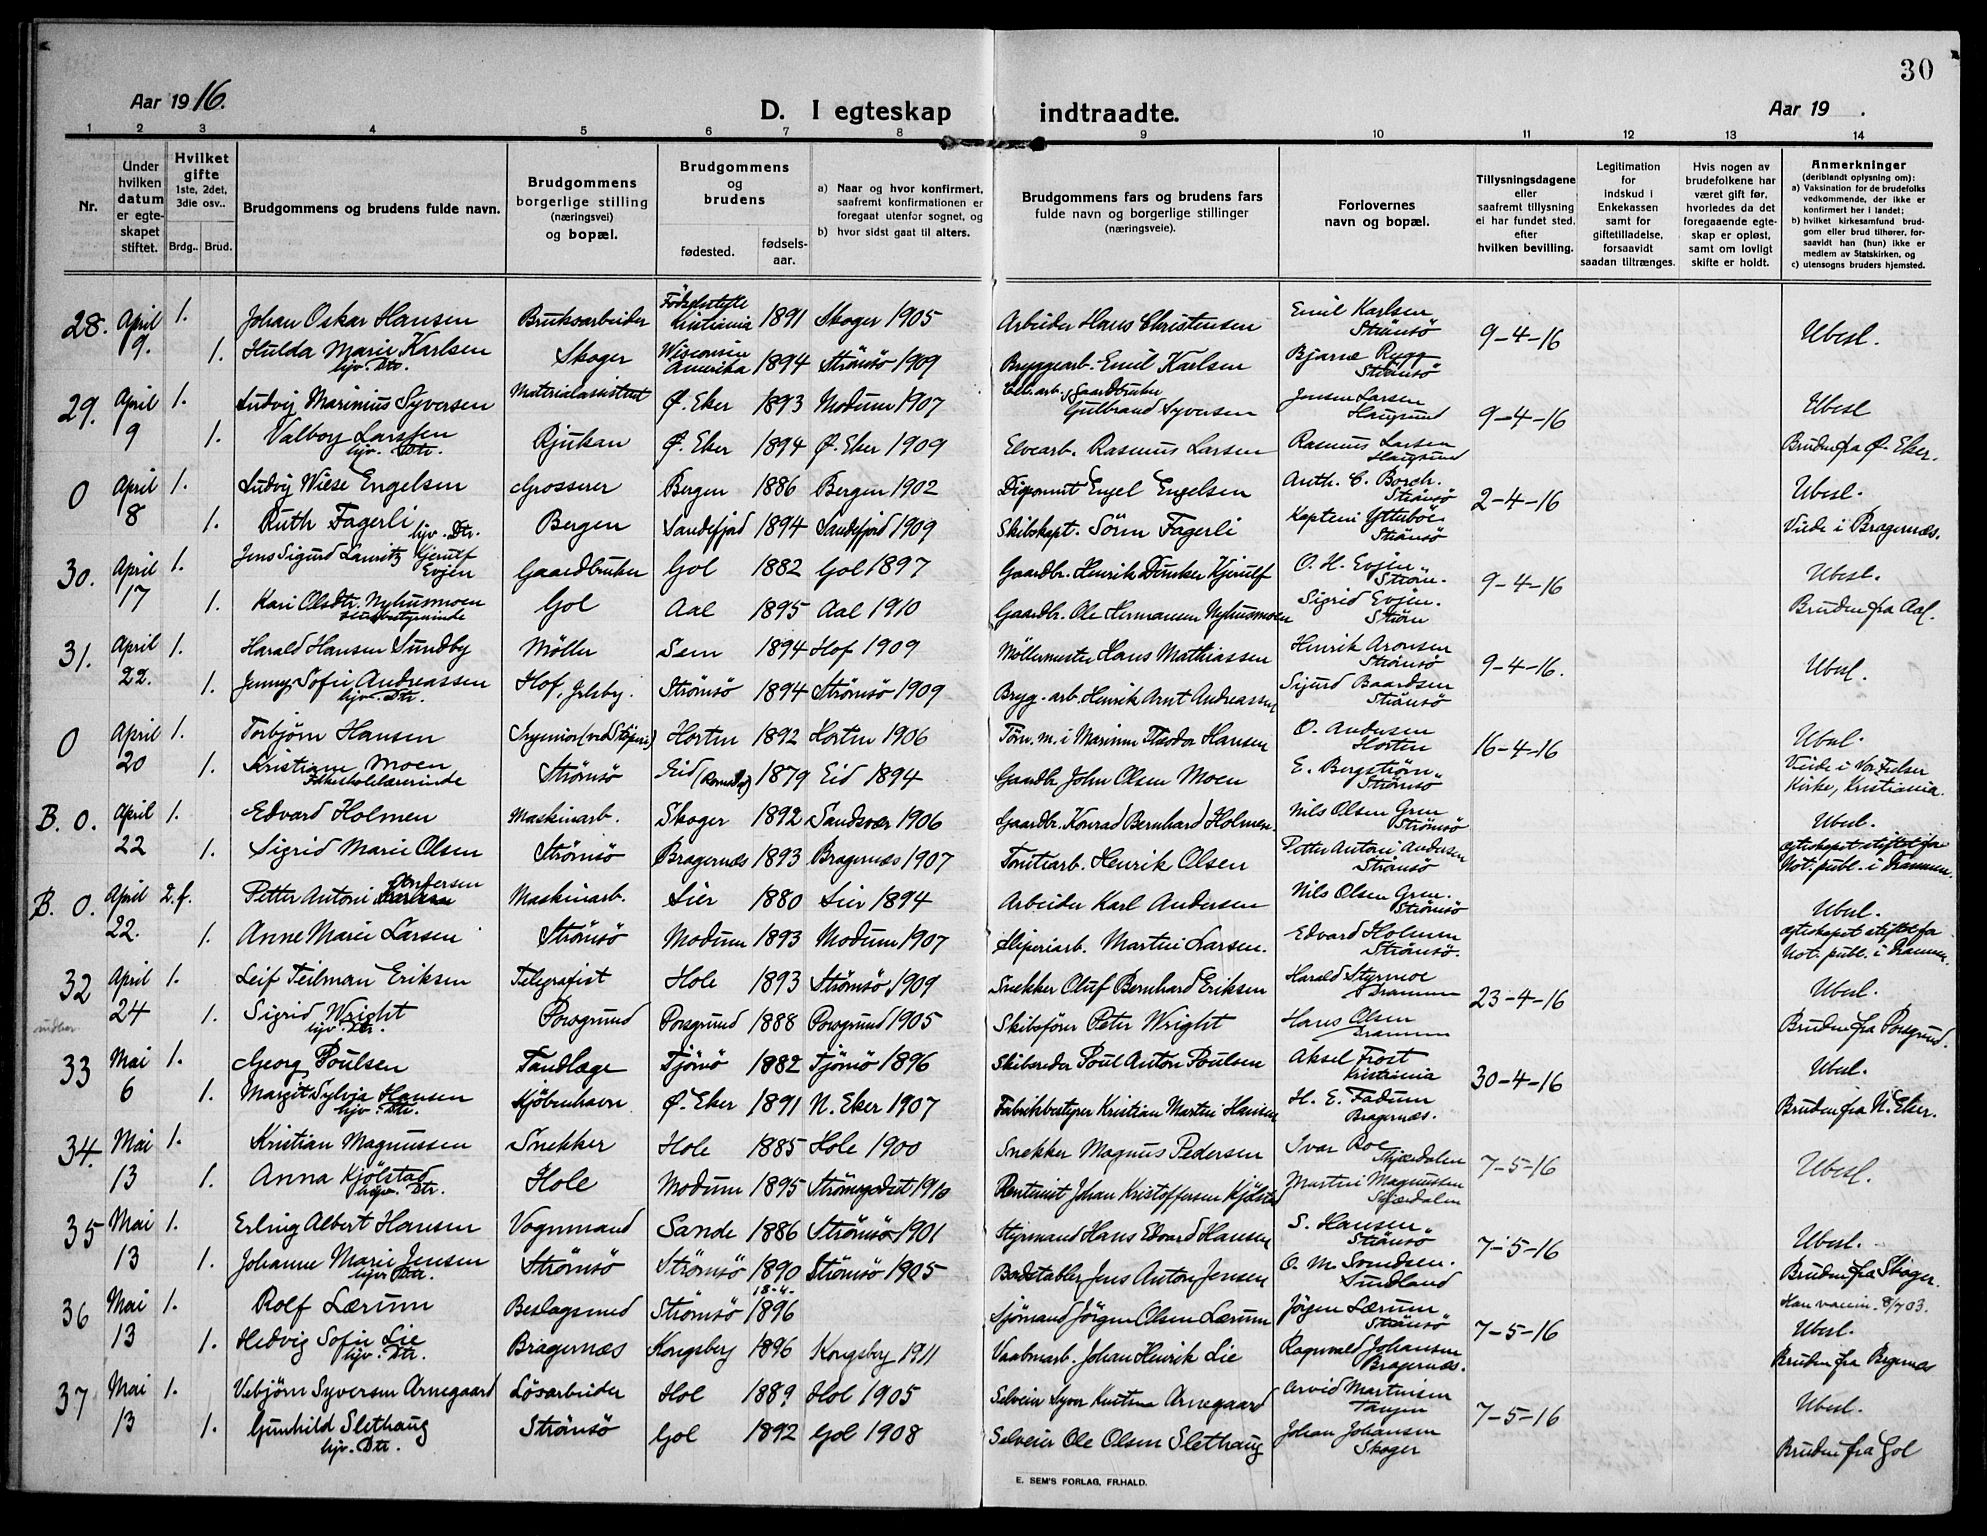 30
Aar 1916.
D. I egteskap indtraadte.
Aar 19 .
1 2 3 4 5 6 7 8 9 10 11 12 13 14
Nr.
Under hvilken datum er egteskapet stiftet.
Hvilket gifte
1ste, 2det, 3die osv..
Brdg. Brud.
Brudgommens og brudens fulde navn.
Brudgommens borgerlige stilling (næringsvei) og bopæl.
Brudgommens og brudens
fødested.
fødselsaar.
a) Naar og hvor konfirmert, saafremt konfirmationen er foregaat utenfor sognet, og
b) hvor sidst gaat til alters.
Brudgommens fars og brudens fars fulde navn og borgerlige stillinger (næringsveie).
Forlovernes navn og bopæl.
Tillysningsdagene eller saafremt tillysning ei har fundet sted. efter hvilken bevilling.
Legitimation for indskud i Enkekassen samt for giftetilladelse, forsaavidt saadan tiltrænges.
Hvis nogen av brudefolkene har været gift før, hvorledes da det foregaaende egteskap er opløst, samt om lovligt skifte er holdt.
Anmerkninger (deriblandt oplysning om):
a) Vaksination for de brudefolks vedkommende, der ikke er konfirmert her i landet;
b) hvilket kirkesamfund brudgom eller brud tilhører, forsaavidt han (hun) ikke er medlem av Statskirken, og
c) utensogns bruders hjemsted.
28. April 9. 1. Johan Oskar Hansen Bruksarbeider Fødselsstifte Kristiania 1891 Skoger 1905 Arbeider Hans Christensen Emil Karlsen Strömsö 9-4-16 Ubesl.
1. Hulda Marie Karlsen hjv. Dtr. Skoger Wisconsin Amerika 1894 Strömsö 1909 Bryggearb. Emil Karlsen Bjarne Rygg Strömsö
29. April 9 1. Ludvig Marinius Syversen Materialassistent Ø. Eker 1893 Modum 1907 Gaardbruker Gulbrand Syversen Jensen Larsen Haugsund 9-4-16 Ubesl
1. Valborg Larsen hjv. Dtr. Rjukan Ø. Eker 1894 Ø. Eker 1909 Elvearb. Rasmus Larsen Rasmus Larsen Haugsund Bruden fra Ø. Eker.
0 April 8 1. Ludvig Wiese Engelsen Grosserer Bergen 1886 Bergen 1902 Disponent Engel Engelsen Anth. C. Borch. Strömsö 2-4-16 Ubesl.
1. Ruth Fagerli hjv. Dtr. Bergen Sandefjord 1894 Sandefjord 1909 Skibskapt. Sörn Fagerli Kaptein Ytteböe Strömsö Viede i Bragernæs.
30. April 17 1. Jens Sigurd Lauritz Kjerulf Evjen Gaardbruker Gol 1882 Gol 1897 Gaardbr. Henrik Duncker Kjerulf O. H. Evjen Ström. 9-4-16 Ubesl.
1. Kari Olsdtr. Nyhusmoen Gol Aal 1895 Aal 1910 Gaardbr. Ole Hermansen Nyhusmoen Sigrid Evjen. Ström Bruden fra Aal.
31. April 22. 1. Harald Hansen Sundby Möller Sem 1894 Hof 1909 Möllermester Hans Mathiassen Henrik Aronsen Strömsö 9-4-16. Ubesl.
1. Jenny Sofie Andreassen hjv. Dtr. Hof, Jelsby. Strömsö 1894 Strömsö 1909 Brygg. arb. Henrik Arnt Andreassen Sigurd Baardsen Strömsö
0 April 20 1. Torbjörn Hansen Ingeniör Horten 1892 Horten 1906 Töm. m. i Marinen Theodor Hansen O. Andersen Horten 16-4-16 Ubesl.
1. Kristiane Moen Folkeskolelærerinde Strömsö Eid (Romsdal) 1879 Eid 1894 Gaardbr. John Olsen Moen E. Bergström Strömsö Viede i Vor Frelser Kirke, Kristiania.
B. 0. April 22 1. Edvard Holmen Maskinarb. Skoger 1892 Sandsvær 1906 Gaardbr. Konrad Bernhard Holmen. Nils Olsen Gren Strömsö Ubesl.
1. Sigrid Marie Olsen Strömsö Bragernæs 1893 Bragernæs 1907 Tomtearb. Henrik Olsen Petter Antoni Andersen Strömsö egteskapet stiftet for Not. publ. i Drammen.
B. 0. April 22. 2. f. Petter Antoni Andersen Maskinarb. Lier 1880 Lier 1894 Arbeider Karl Andersen Nils Olsen Gren. Strömsö Ubesl.
1. Anne Marie Larsen Strömsö Modum 1893 Modum 1907 Sliperiarb. Martin Larsen. Edvard Holmen Strömsö. egteskapet stiftet for Not. publ. i Drammen.
32 April 24 1. Leif Teilman Eriksen Telegrafist Hole 1893 Strömsö 1909 Snekker Oluf Bernhard Eriksen Harald Styrmoe Drammen 23-4-16 Ubesl.
1. Sigrid Wright hjv. Dtr. Porsgrund Porsgrund 1888 Porsgrund 1905 Skibsförer Peter Wright Hans Olsen Drammen Bruden fra Porsgrund.
33 Mai 6 1. Georg Poulsen Tandlæge Tjömö 1882 Tjömö 1896 Skibsreder Poul Anton Poulsen Aksel Frost Kristiania 30-4-16 Ubesl.
1. Margit Sylvia Hansen hjv. Dtr. Kjöbenhavn Ø. Eker 1891 N. Eker 1907 Fabrikbestyrer Kristian Martin Hansen H. E. Fadum Bragernæs. Bruden fra N. Eker.
34. Mai 13 1. Kristian Magnussen Snekker Hole 1885 Hole 1900 Snekker Magnus Pedersen Ivar Roe Skjærdalen 7-5-16 Ubesl.
1. Anna Kjölstad hjv. Dtr. Hole Modum 1895 Strömsgodset 1910 Rentenist Johan Kristoffersen Kjölstad Martin Magnussen Skjærdalen
35 Mai 13 1. Erling Albert Hansen Vognmand Sande 1886 Strömsö 1901 Styrmand Hans Edvard Hansen S. Hansen Strömsö 7-5-16 Ubesl.
1. Johanne Marie Jensen hjv. Dtr. Strömsö Strömsö 1890 Strömsö 1905 Badstabler Jens Anton Jensen O. M. Svendsen. Sundland Bruden fra Skoger.
36 Mai 13 1. Rolf Lærum Beslagsmed Strömsö 18-4. 1896 Sjömand Jörgen Olsen Lærum Jörgen Lærum Strömsö 7-5-16 Han vaccin. 8/7 03. Ubesl.
1. Hedvig Sofie Lie hjv. Dtr. Bragernæs Kongsberg 1896 Kongsberg 1911 Vaabenarb. Johan Henrik Lie Ragnvald Johansen Bragernæs. Bruden fra Bragernæs
37 Mai 13 1. Vebjörn Syversen Arnegaard Lösarbeider Hol 1889 Hol 1905 Selveier Syver Knutsen Arnegaard Arvid Martinsen Tangen 7-5-16 Ubesl.
1. Gunhild Slethaug hjv. Dtr. Strömsö Gol 1892 Gol 1908 Selveier Ole Olsen Slethaug Johan Johansen Skoger Bruden fra Gol
E. SEM'S FORLAG, FR.HALD.